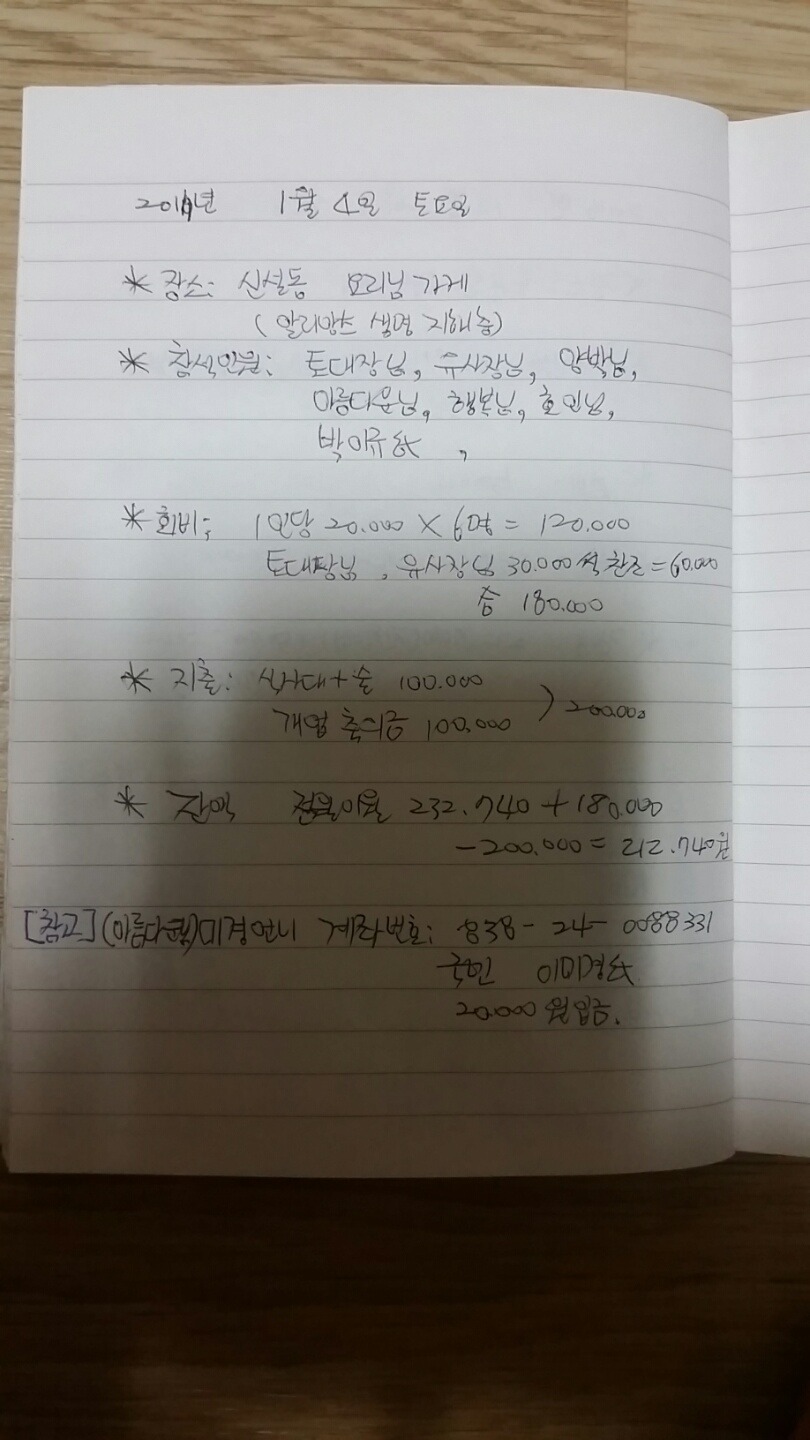 2014년 1월 4일 토요일
* 장소: 신설동 요리님 가게
(알리앙츠 생명 지하층)
* 참석인원: 토대장님, 유사장님, 양박님,
아름다운님, 행복님, 호인님,
박이규氏,
* 회비: 1인당 20.000 × 6명 = 120.000
토대장님, 유사장님 30.000씩 찬조 = 60.000
총 180.000
* 지출: 식사대+술 100.000
개업 축의금 100.000 > 200.000
* 잔액 전월이월 232.740 + 180.000
-200.000 = 212.740원
[참고] (아름다운) 미경언니 계좌번호: 838-24-0088331
국민 이미경氏
20.000원 입금.